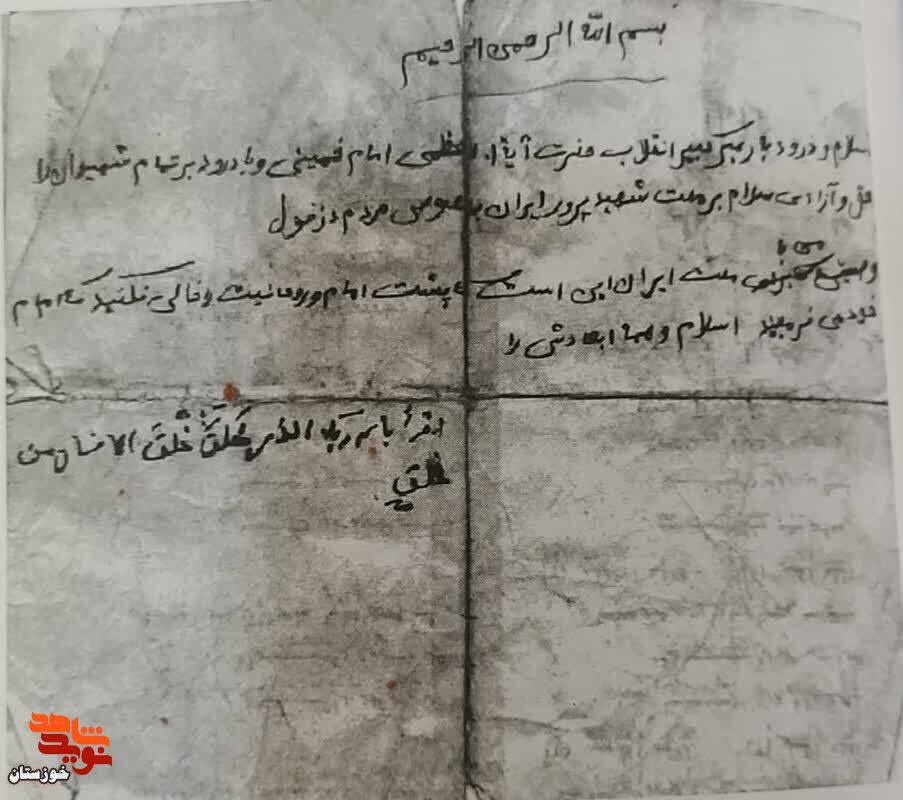 بسم الله الرحمن الرحیم
سلام و درود بر رهبر کبیر انقلاب حضرت آیة ا. العظمی امام خمینی و با درود بر تمام شهیدان راه
حق و آزادی سلام بر ملت شهید پرور ایران بخصوص مردم دزفول
می با
ملت ایران این است که پشت امام و روحانیت را خالی نکنید که امام
خود می فرمیند اسلام و همه ابعادش را
اقرأ باسم ربك الذی خَلَقَ خَلَقَ الانسان من
علق
شاهد
نوید
خوزستان